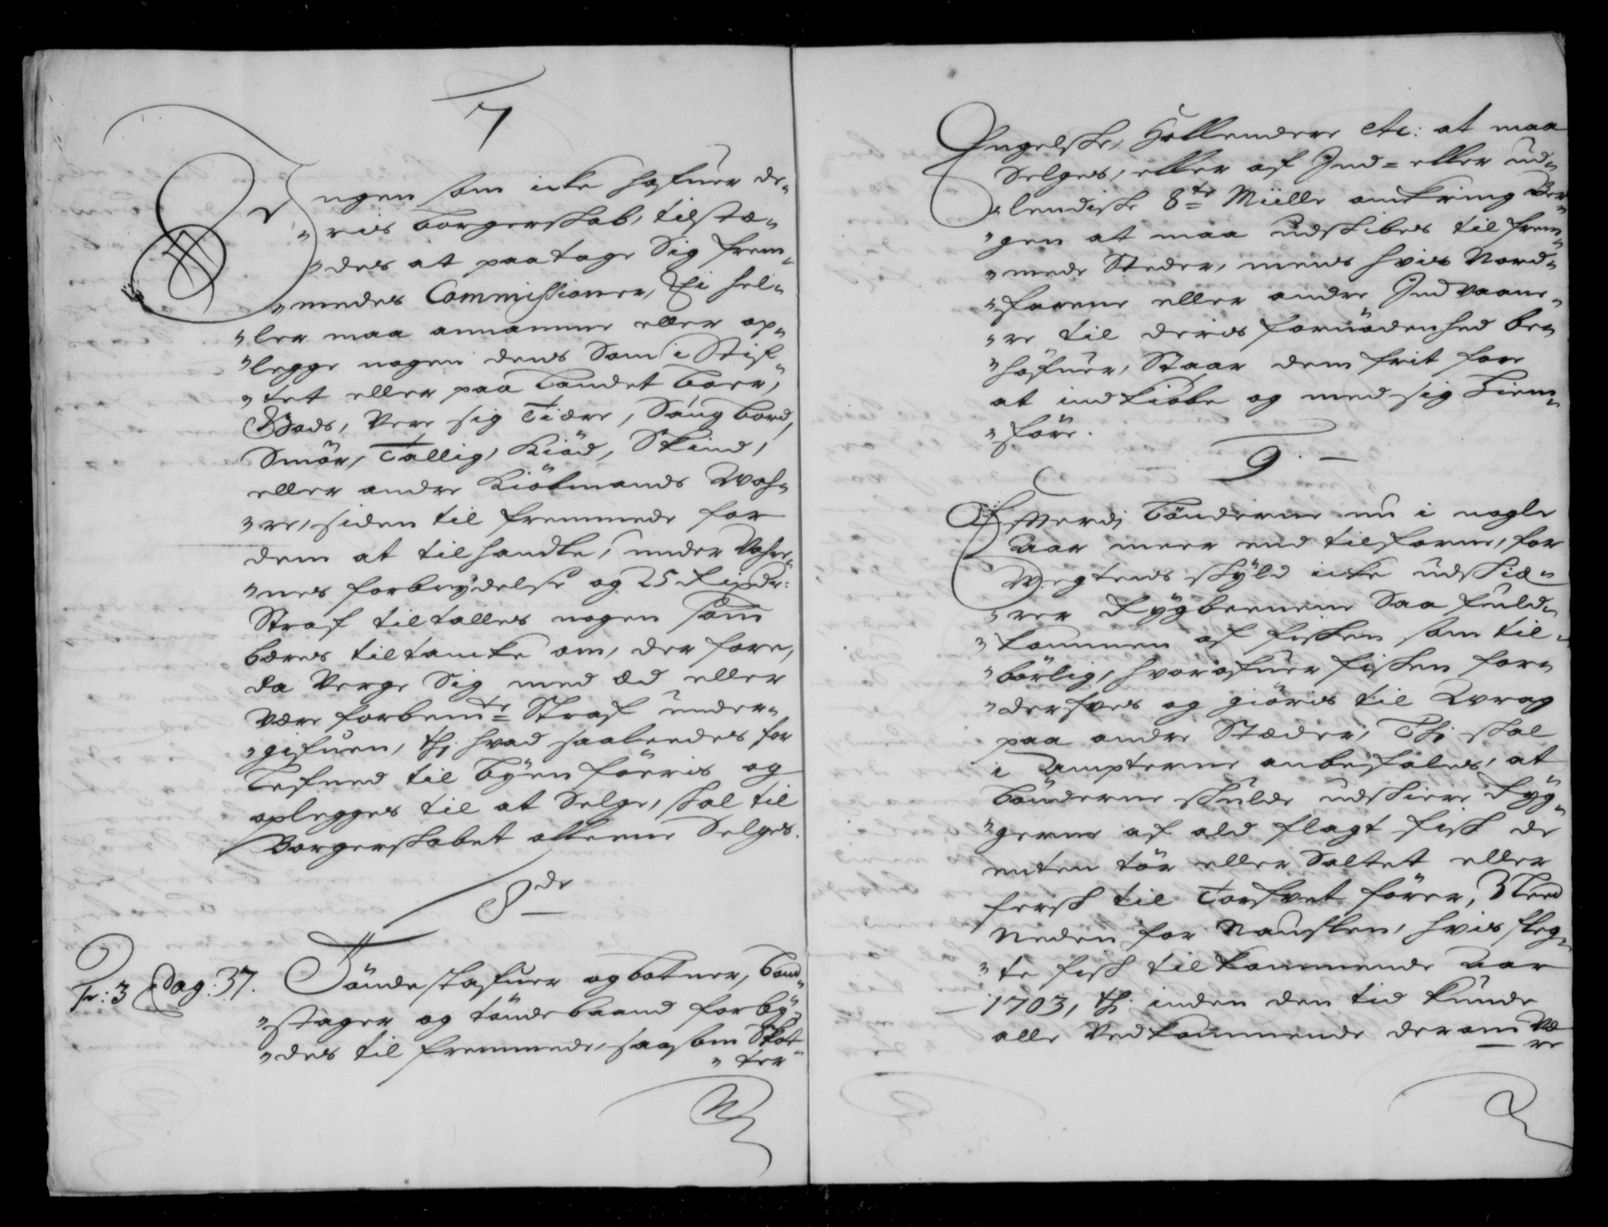 7
Ingen som icke hafuer de-
"ris borgerskab, tilstæ-
"des at paatage Sig frem-
"medes Commissioner, Ei hel-
"ler maa annamme eller op-
"legge nogen dens Som i Stif-
"tet eller paa Landet boer,
Gods, Vere sig Tiære, Saugbord,
Smör, Tallig, Kiöd, Skind,
eller andre Kiöbmands Wah-
"re, siden til fremmede for
dem at tilhandle, under Vahre-
"nes forbrydelse og 25 Rixdr:
Straf tiltalles nogen som
bæres tiltancke om, der fore,
da Verge Sig med Æd eller
være forbemte Straf under-
"gifuen, thj hvad saaledes for
Lefned til byen föeris og
oplegges til at Selge, skal til
Borgerskabet alleene Selges.
8de
Tr: 3 Pag: 37. Töndestafuer og botner, band-
"stager og töndebaand forby-
"des til fremmede, saasom Skot-
"ter
Engelske, Hollendere etc: at maa
Selges, eller af Ind= eller ud-
"lendiske 8te Miille omkring Ber-
"gen at maa udskibes til frem-
"mede Steder, mens hvis Nord-
"farene eller andre Indvaane-
"re til deris fornödenhed be-
"höfuer, Staar dem frit fore
at indkiöbe og med sig hiem-
"före.
9.
Efterdj bönderne nu i nogle
Aar meer end tilforne, for
Vegtens skyld icke udskiæ-
"rer Rygbeenene Saa fuld-
"kommen af fisken som til-
"börlig, hvorofuer fisken for-
"derfves og giöris til Wrag
paa andre Stæder, Thj skal
i Ampterne anbefales, at
bönderne skulde udskiere Ryg-
"gene af ald flagt fisk de
enten tör eller Saltet eller
fersk til Torfvet förer, 3 Leed
Neden for Nauflen, hvis fleg-
"te fisk tilkommende aar
1703, thj inden den tid kunde
alle Vedkommende derom væ-
re